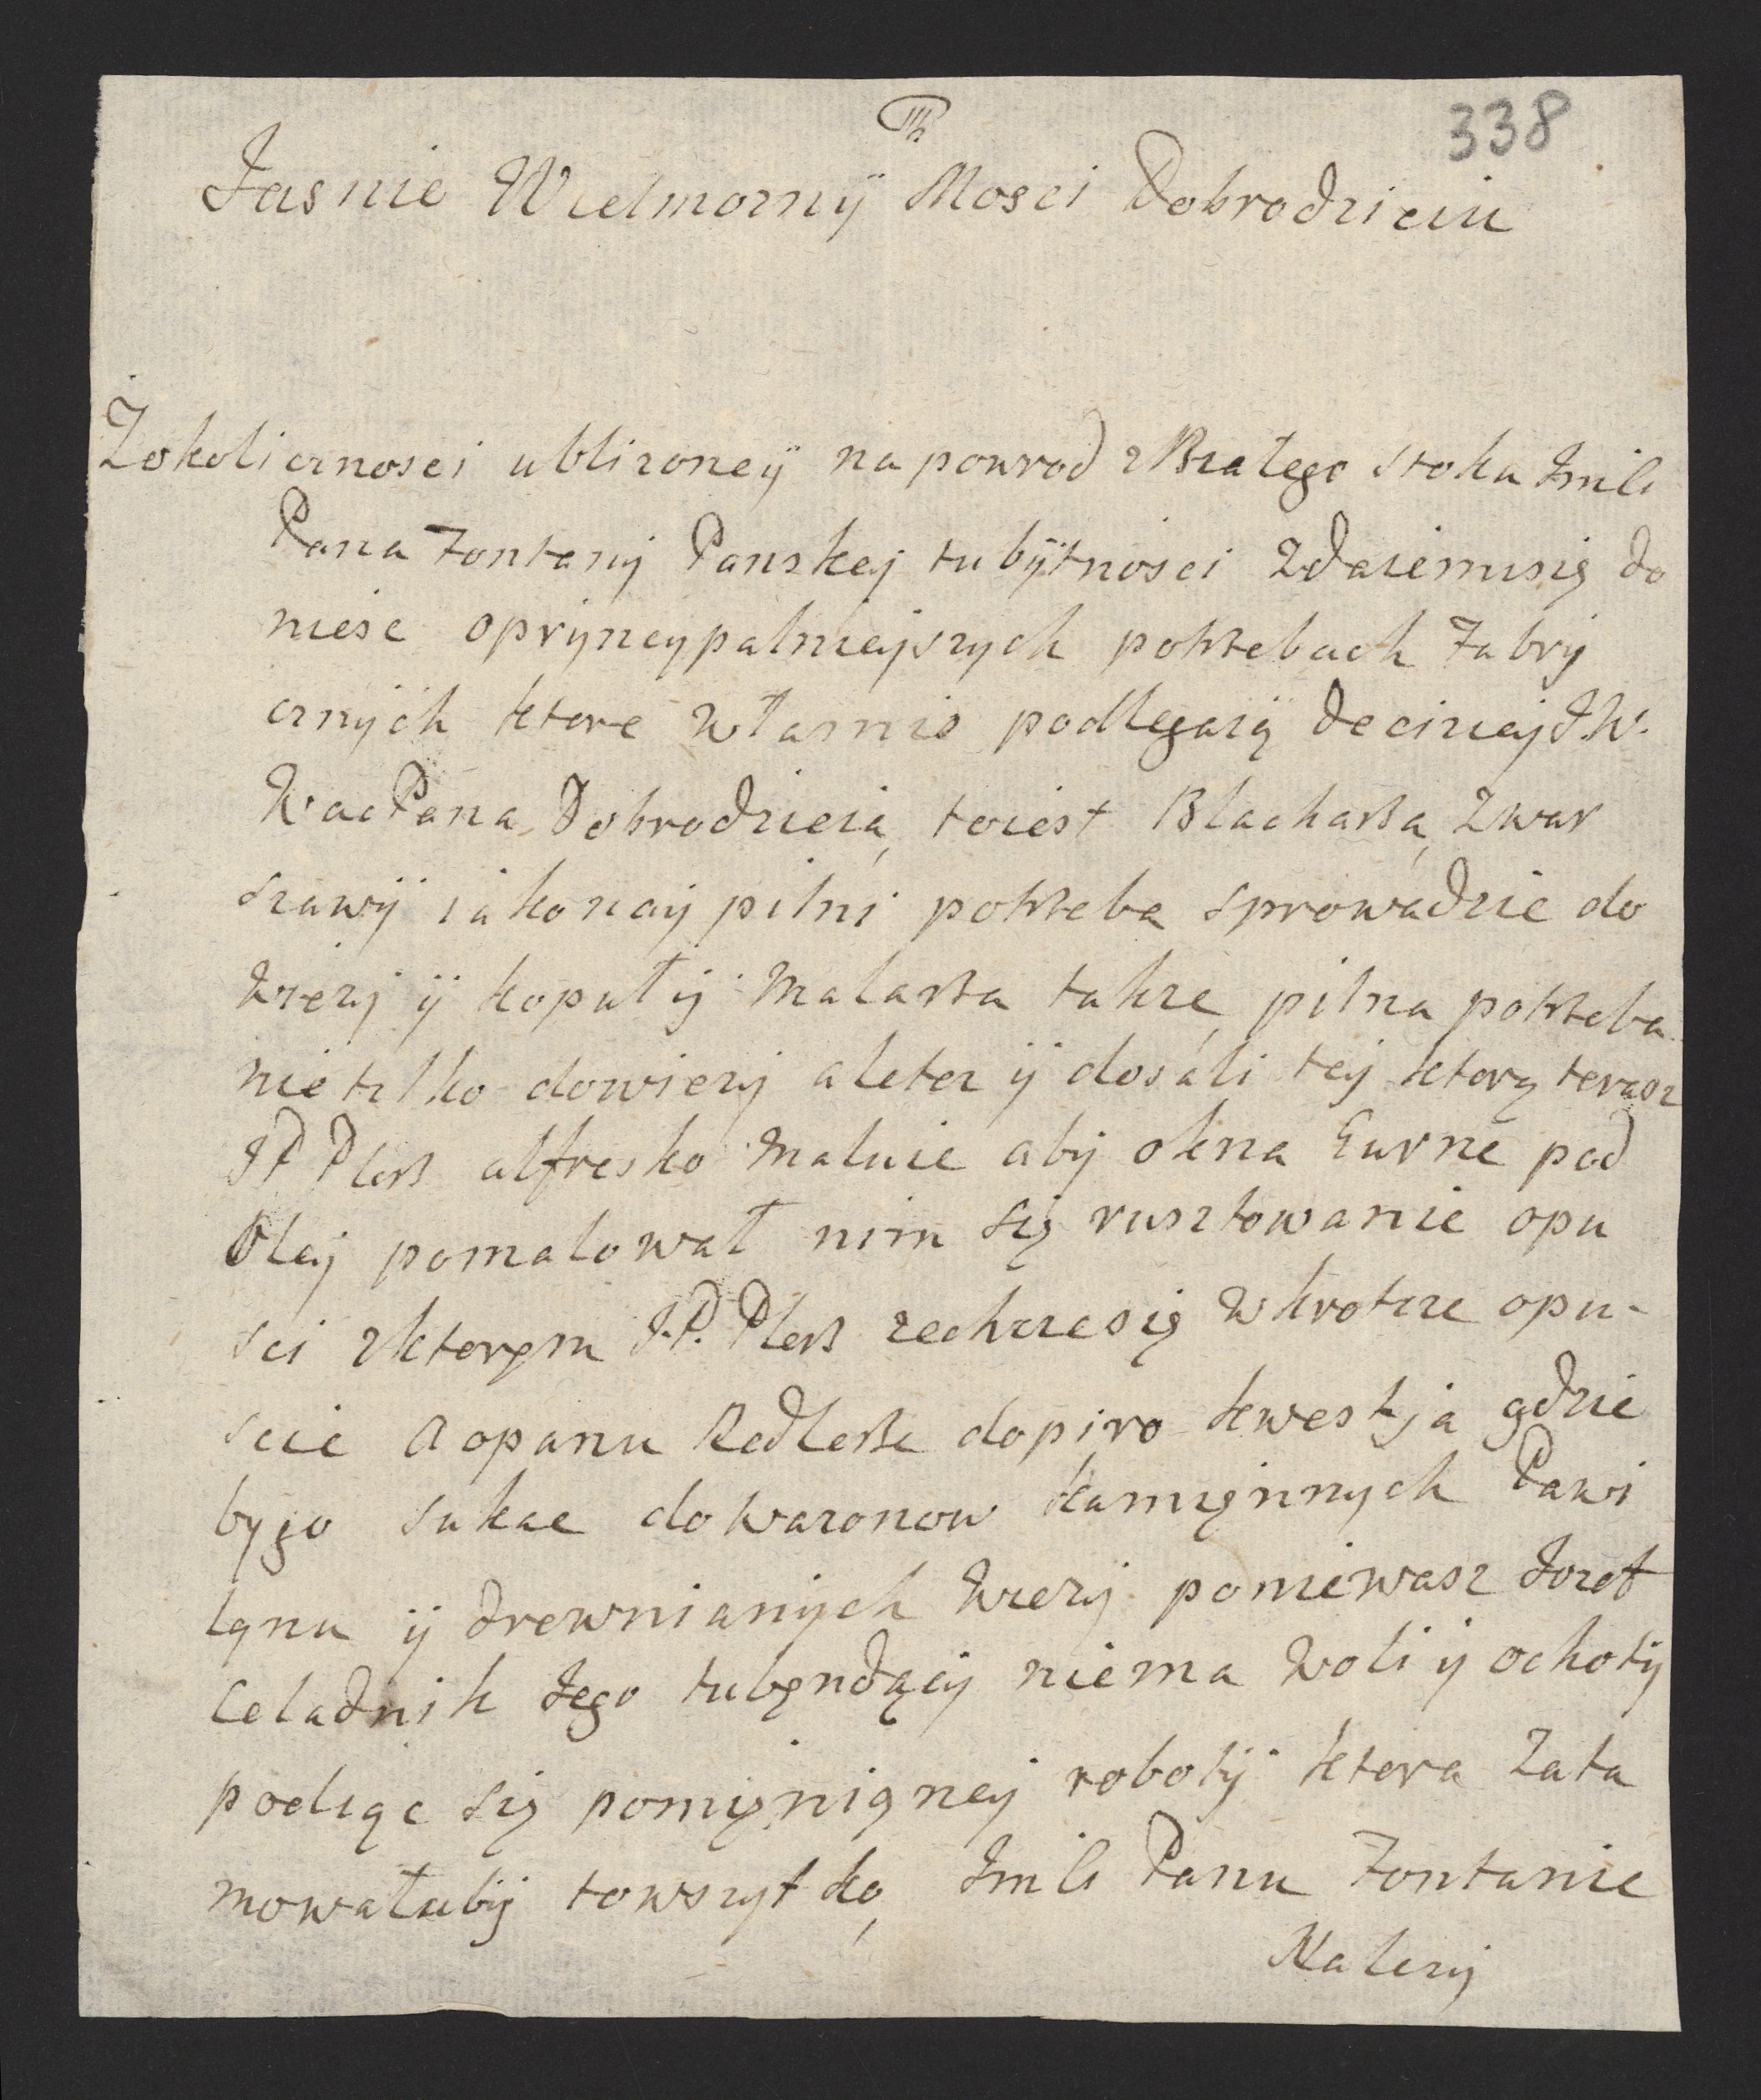 338
Jasnie Wielmozny Mosci Dobrodzieiu
Zokolicznosci ublizoney na powrod z Białego stoka Jmći
Pana Fontany Panskej tu bytnosci zdaiemisię do
niesc oprzyncypalniejszych potrzebach Fabry
cznych ktore własnie podlegaią deciziej J.W.
WacPana Dobrodzieia, toiest Blacharza zwar
szawy iakonaypilni potrzeba sprowadzic do
wiezy y kopuły Malarza takze pilna potrzeba
nie tylko dowiezy aletez y dosali tej ktorą terasz
JP Plersz alfresko maluie aby okna Gurne pod
Oley pomalował nim się rusztowanie opu
sci zktorym J.P. Plersz zechcesię wkrotce opu-
scic A opanu Redlerze dopiro kwestja gdzie
bygo sukac dowazonow kamięnnych Pawi
ląnu y drewnianych wiezy poniewasz Jozef
Celadnik Jego tubęndący niema woli y ochoty
podiąc się pomięnioney roboty ktora zata
mowałaby towszytko Jmći Panu Fontanie
Nalezy